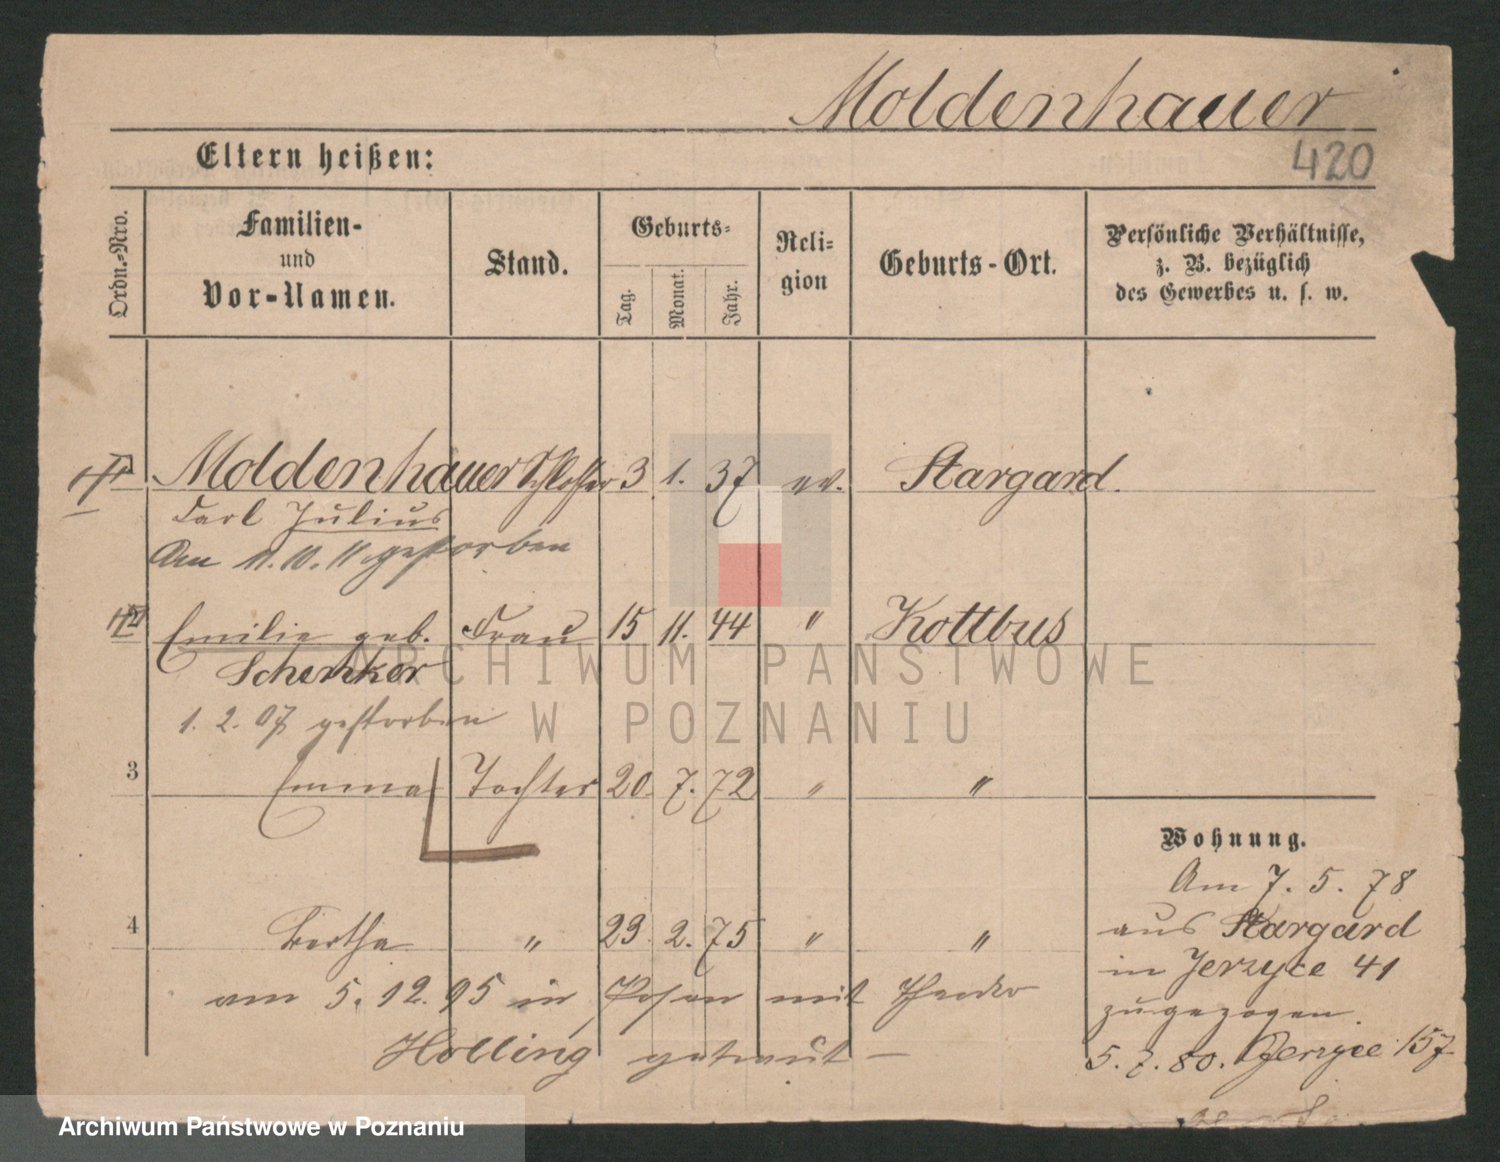 Moldenhauer
420
Eltern heißen:
Ordn.-Nro.
Familien-
und
Vor-Namen.
Stand.
Geburts-
Tag.
Monat.
Jahr.
Reli-
gion
Geburts-Ort.
Persönliche Verhältnisse,
z. B. bezüglich
des Gewerbes u. s. w.
Moldenhauer Schlosser 3 1. 37 ev. Stargard.
Carl Julius
Am 11.10.11 gestorben
2 Emilie geb. Frau 15 11. 44 " Kottbus
Schenker
1. 2. 07 gestorben
3 Emma Tochter 20. 7. 72 " "
4 Bertha " 23. 2. 75 " "
am 5. 12. 95 in Posen mit Theodor
Holling getraut —
Wohnung.
Am 7. 5. 78
aus Stargard
in Jerzyce 41
zugezogen.
5. 7. 80. Jerzyce 157
ARCHIWUM PAŃSTWOWE
W POZNANIU
Archiwum Państwowe w Poznaniu